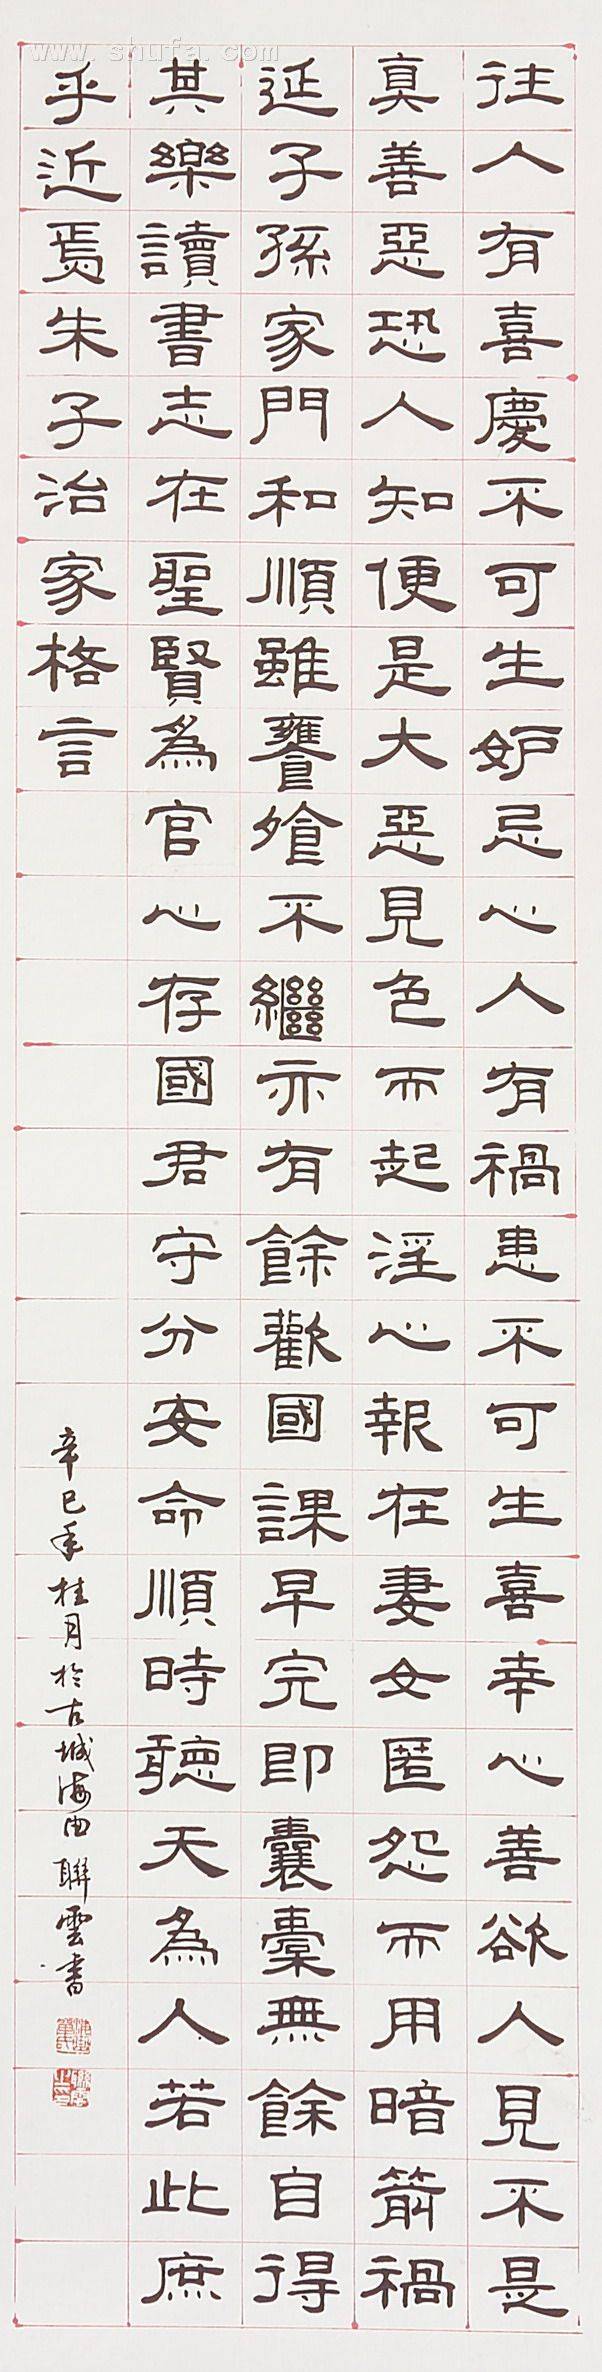 www.shufa.com
往人有喜慶不可生妒忌心人有禍患不可生喜幸心善欲人見不是
真善惡恐人知便是大惡見色而起淫心報在妻女匿怨而用暗箭禍
延子孫家門和順雖饔飧不繼亦有餘歡國課早完即囊橐無餘自得
其樂讀書志在聖賢爲官心存國君守分安命順時聽天為人若此庶
乎近焉朱子治家格言
辛巳年桂月於古城海曲聯雲書